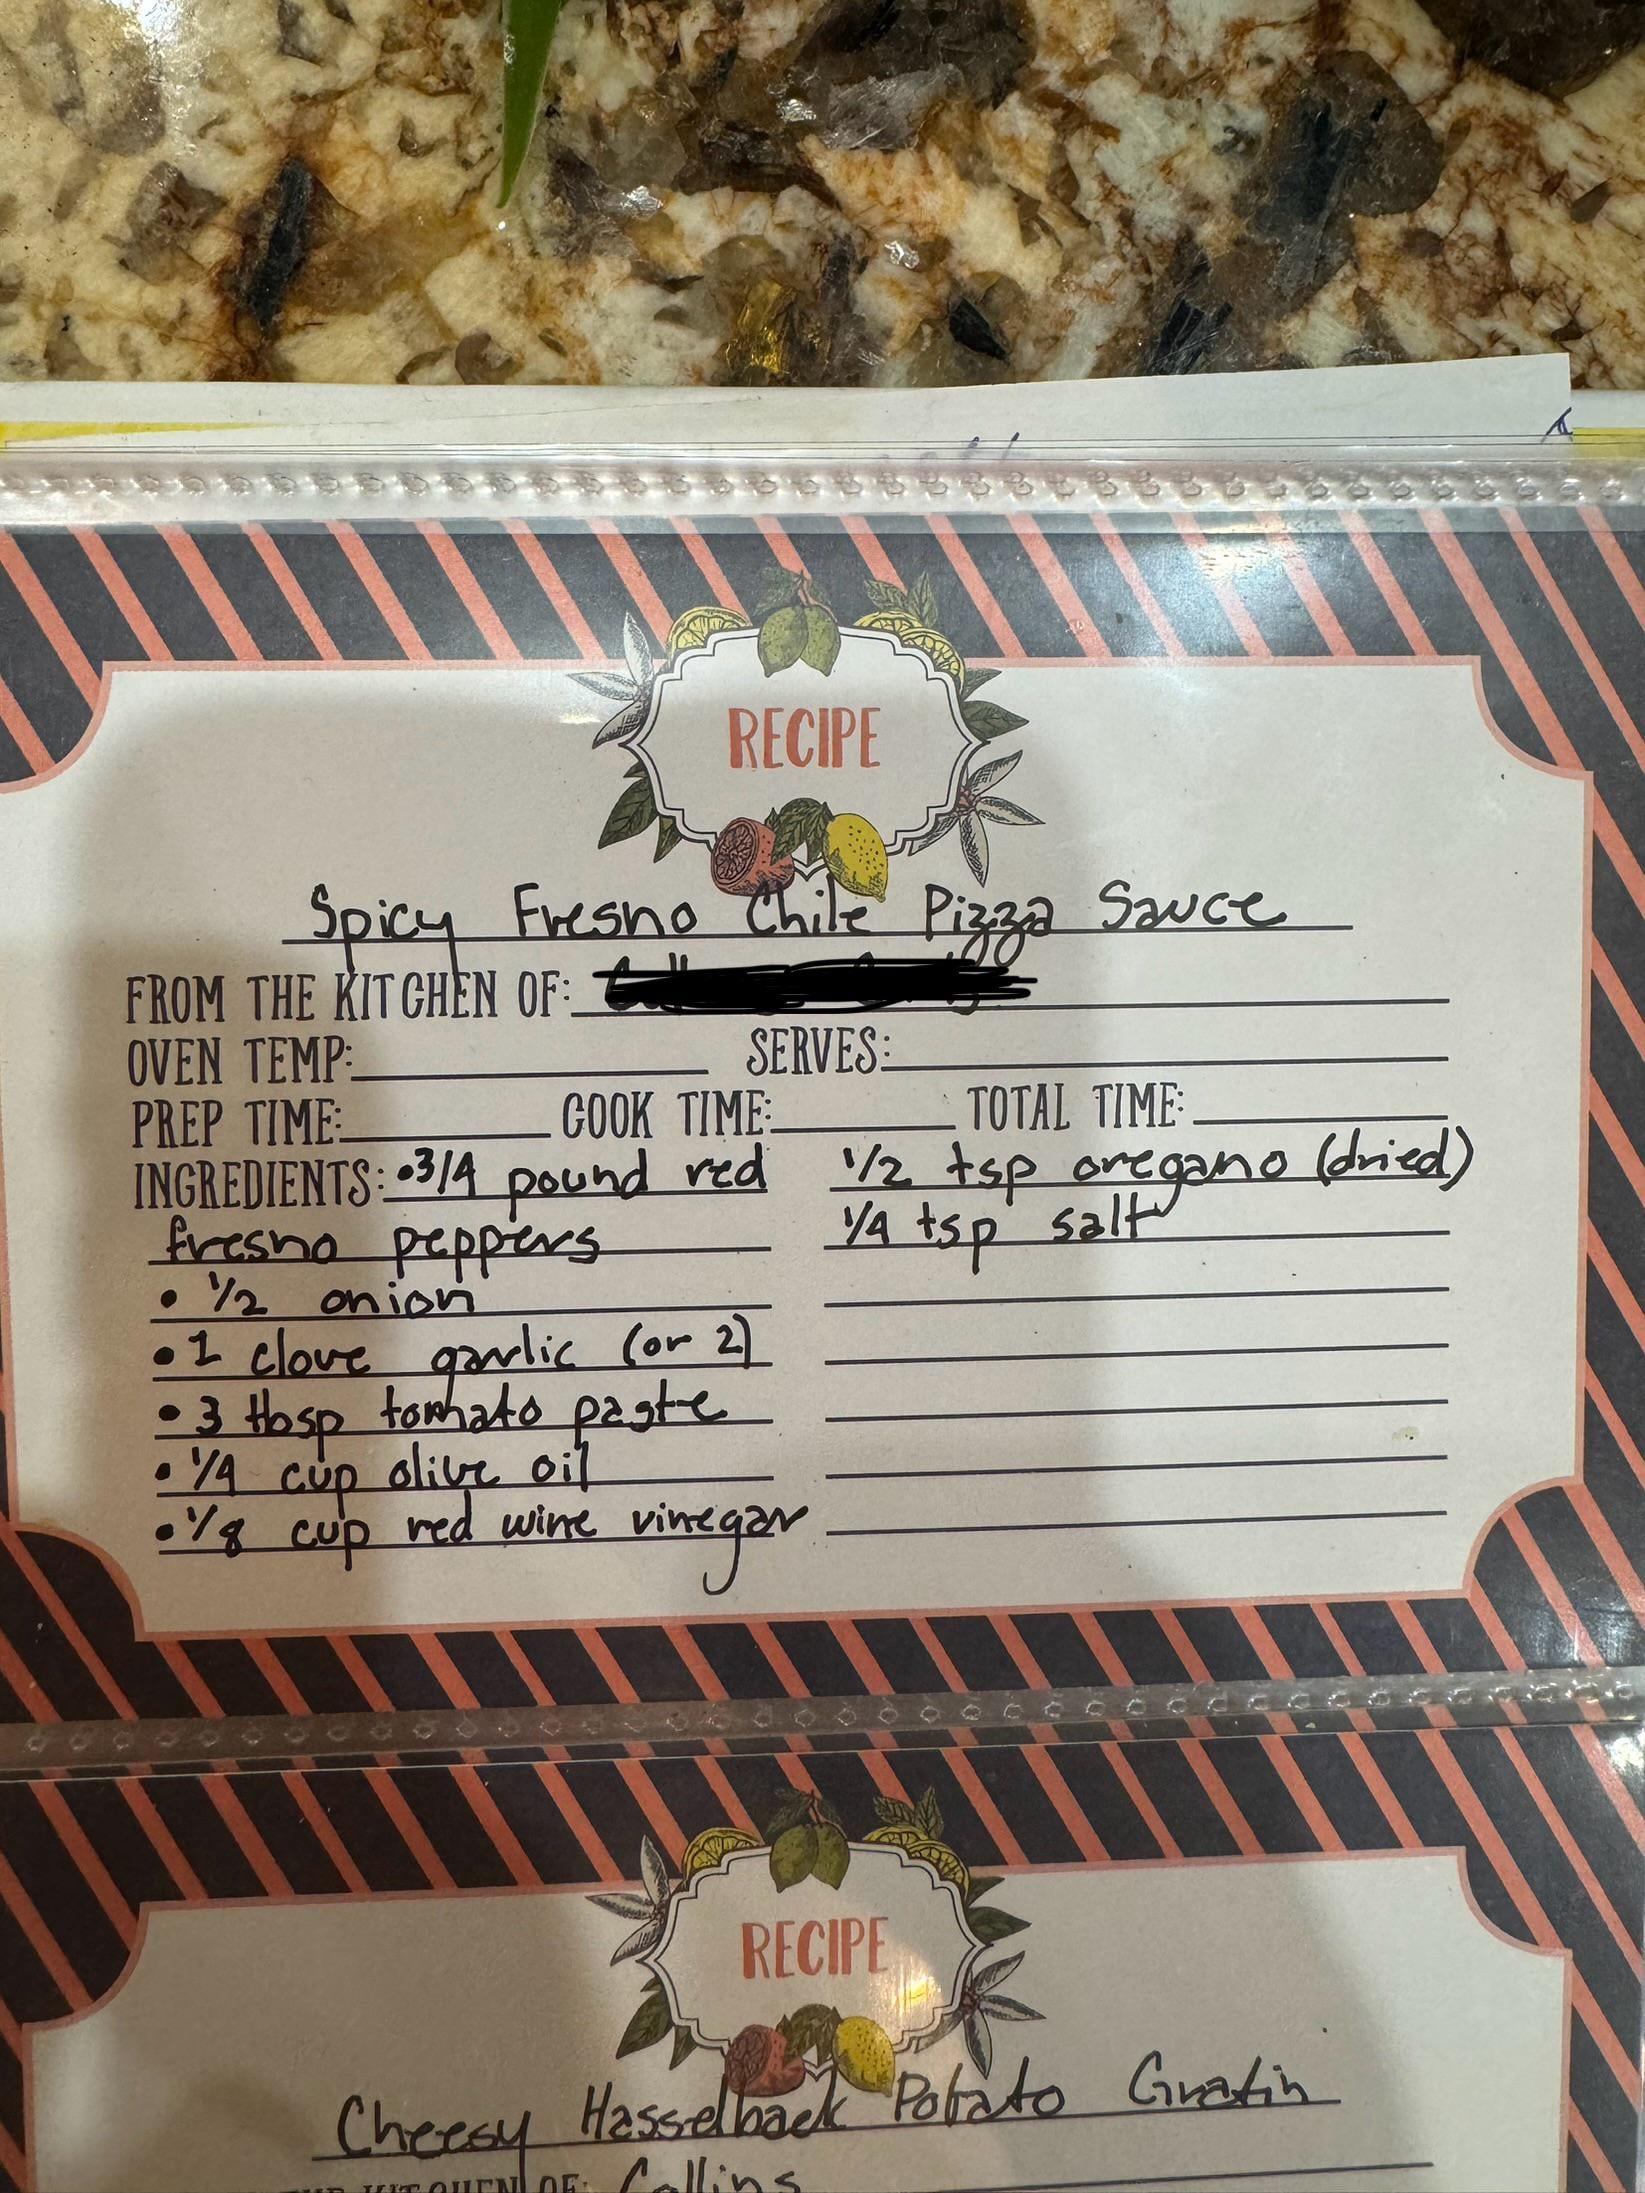 RECIPE
Spicy Fresno Chile Pizza Sauce
FROM THE KITCHEN OF:
OVEN TEMP: SERVES:
PREP TIME: COOK TIME: TOTAL TIME:
INGREDIENTS: •3/4 pound red
fresno peppers
• 1/2 onion
• 1 clove garlic (or 2)
• 3 tbsp tomato paste
• 1/4 cup olive oil
• 1/8 cup red wine vinegar
1/2 tsp oregano (dried)
1/4 tsp salt
RECIPE
Cheesy Hasselback Potato Gratin
KITCHEN OF: Collins